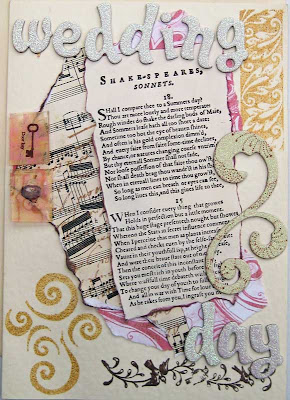 wedding
SHAKE-SPEARES,
SONNETS.
18.
SHall I compare thee to a Summers day?
Thou art more lovely and more temperate
Rough windes do shake the darling buds of Maie,
And Sommers lease hath all too short a date:
Sometime too hot the eye of heaven shines,
And often is his gold complexion dimm'd,
And every faire from faire some-time declines,
By chance, or natures changing course
But thy eternall Sommer shall not fade,
Nor loose possession of that faire thou
Nor shall death brag thou wandr'st in his
When in eternall lines to time thou grow'st,
So long as men can breath or eyes can see,
So long lives this, and this gives life to thee,
15
WHen I consider every thing that growes
Holds in perfection but a little moment.
That this huge stage presenteth nought but showes
Whereon the Stars in secret influence comment.
When I perceive that men as plants increase,
Cheared and checkt even by the selfe-same skie:
Vaunt in their youthfull sap, at height decrease,
And were their brave state out of
Then the conceit of this inconstant stay,
Sets you most rich in youth before
Where wastfull time debateth with
To change your day of youth to
And all in war with Time for love
As he takes from you, I ingraft you
day